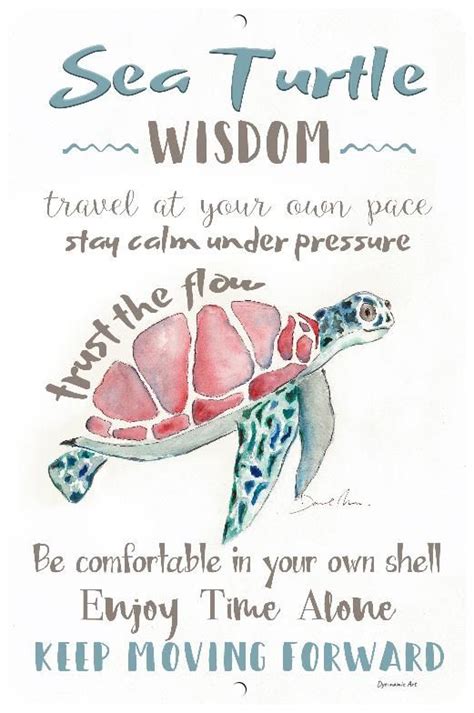 Sea Turtle
WISDOM
travel at your own pace
stay calm under pressure
trust the flow
Be comfortable in your own shell
Enjoy Time Alone
KEEP MOVING FORWARD
Dyenamic Art